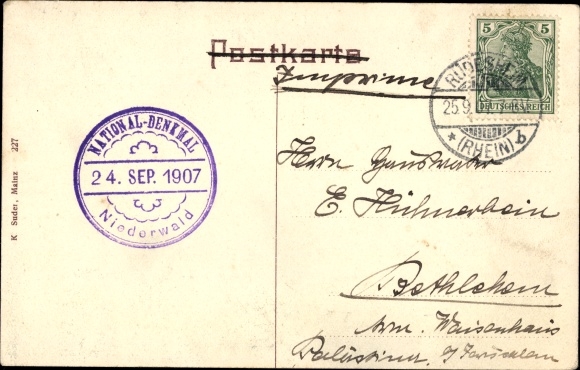 Postkarte
Imprimé
5 5
DEUTSCHES REICH
RÜDESHEIM
25.9.
*(RHEIN) b
NATIONAL-DENKMAL
24. SEP. 1907
Niederwald
K Suder, Mainz 227
Herrn
E. Hühnerbein
Bethlehem
arm. Waisenhaus
Palästina, b/ Jerusalem